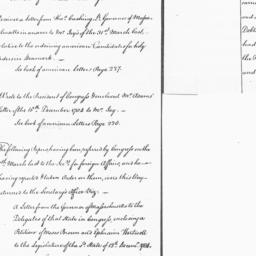 Received a letter from Thos. Cushing Lt. Governor of Massa-
chusetts in answer to Mr. Jay's of the 31st March last
relative to the ordaining american Candidates for holy
Orders in Denmark.
See book of american Letters Page 227.
Wrote to the President of Congress Mr. Adams'
Letter of the 15th December 1784 to Mr. Jay.
See book of american Letters Page 230.
The following Papers having been referred by Congress on the
March last to the Secy. for foreign Affairs, and he
having reported & taken Order on them, were this Day
returned to the Secretary's Office Viz:
A Letter from the Governor of Massachusetts to the
Delegates of that State in Congress, enclosing a
Petition of Moses Brown and Ephraim
to the Legislature of the sd. State of 1784.